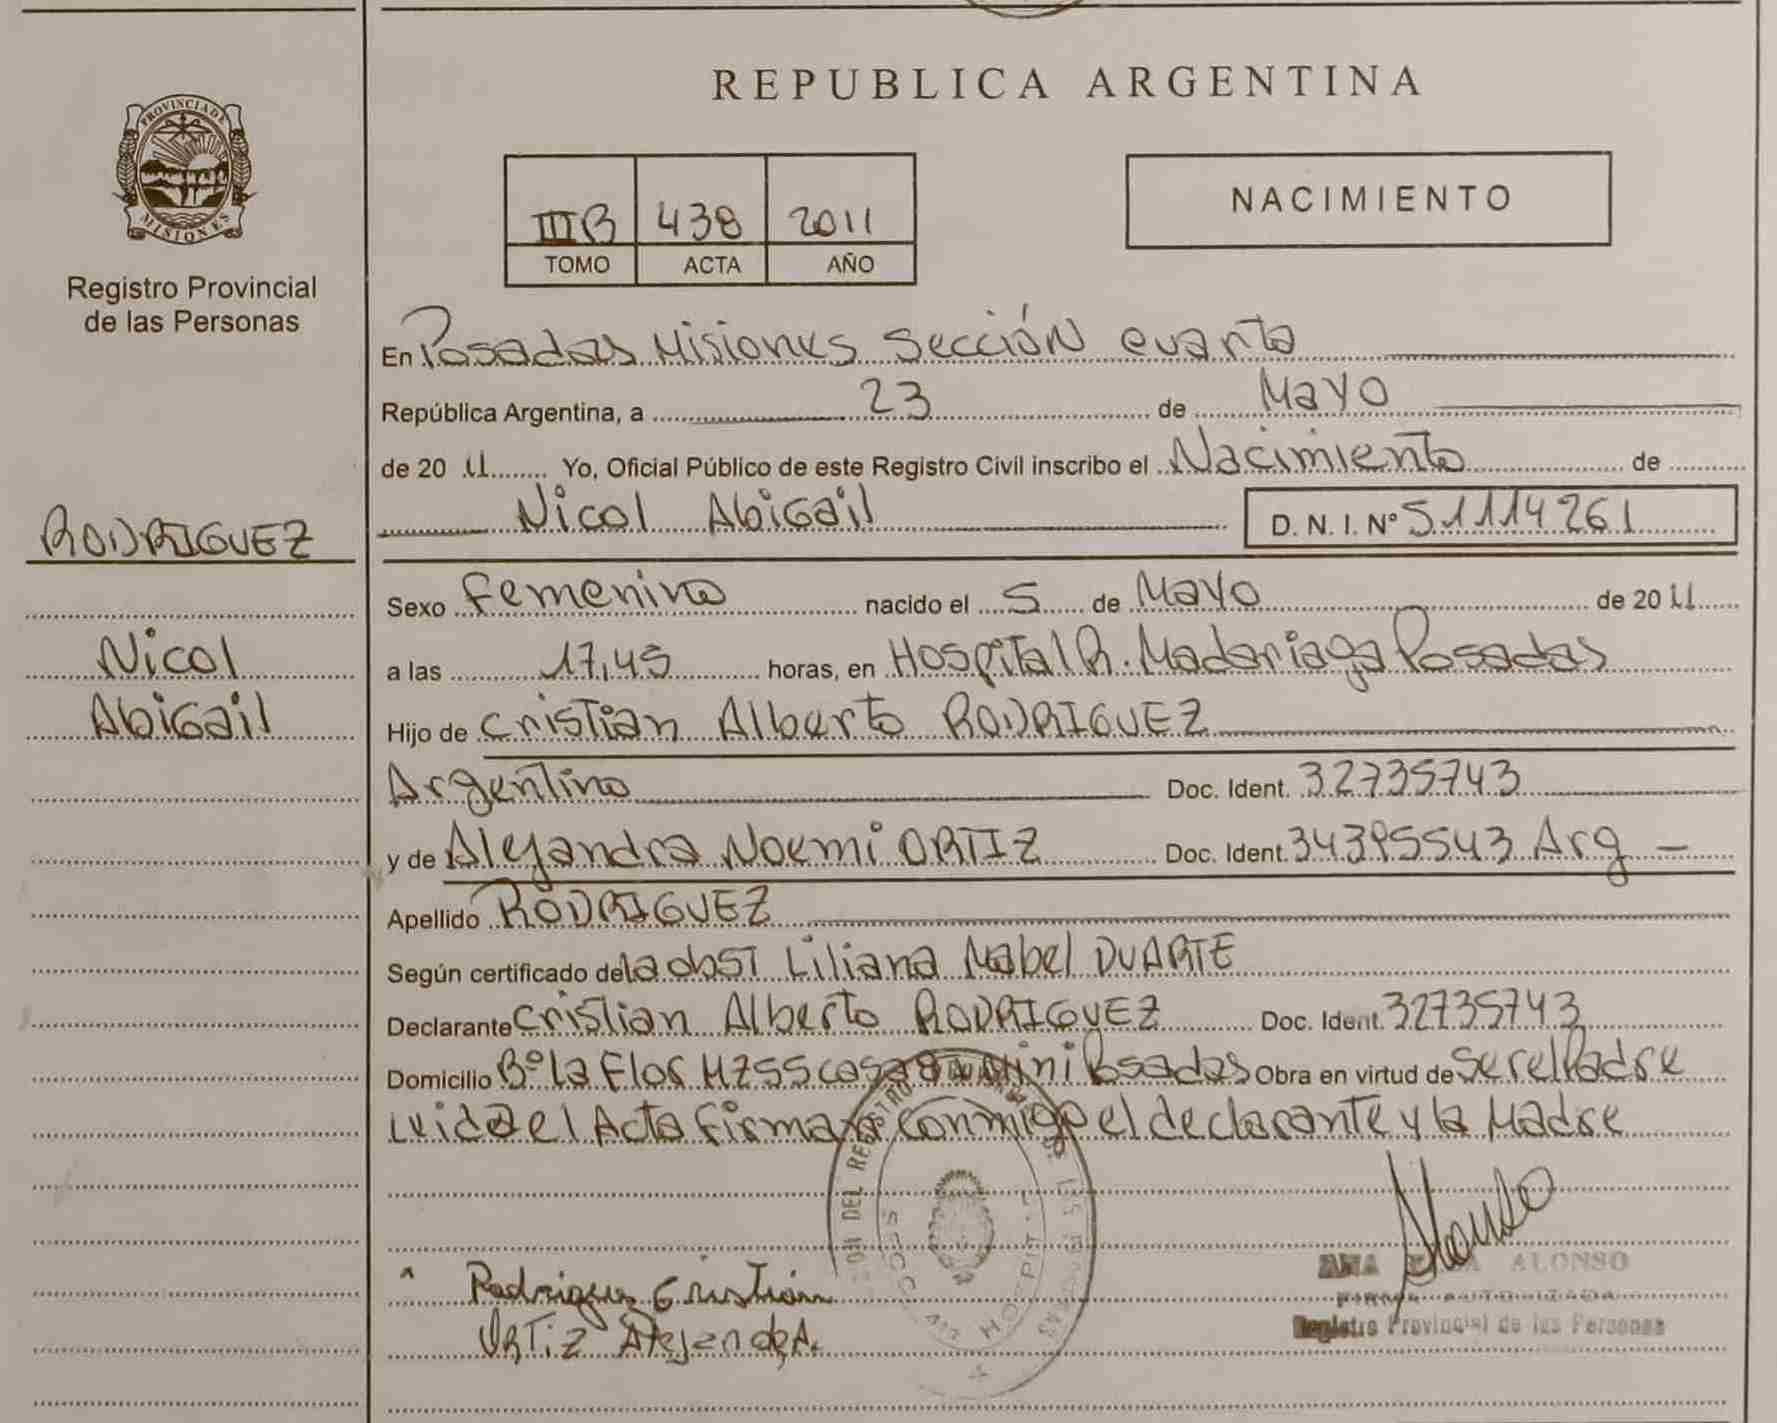 REPUBLICA ARGENTINA
PROVINCIA DE
MISIONES
Registro Provincial
de las Personas
IIIB 438 2011
TOMO ACTA AÑO
NACIMIENTO
En Posadas Misiones Sección cuarta
República Argentina, a 23 de Mayo
de 20 11 Yo, Oficial Público de este Registro Civil inscribo el Nacimiento de
Nicol Abigail D. N. I. Nº 51114261
RODRIGUEZ
Nicol
Abigail
Sexo Femenino nacido el 5 de Mayo de 20 11
a las 17,45 horas, en Hospital R. Madariaga Posadas
Hijo de Cristian Alberto RODRIGUEZ
Argentino Doc. Ident. 32735743
y de Alejandra Noemi ORTIZ Doc. Ident. 34395543 Arg
Apellido RODRIGUEZ
Según certificado de la obst Liliana Mabel DUARTE
Declarante Cristian Alberto RODRIGUEZ Doc. Ident. 32735743
Domicilio Bº la Flor Mz 55 casa Posadas Obra en virtud de ser el Padre
Leida el Acta firman conmigo el declarante y la Madre
Rodriguez Cristian
ORTiz Alejandra
DEL REGISTRO
HOSPIT
Alonso
ANA ALONSO
FIRMA AUTORIZADA
Registro Provincial de las Personas